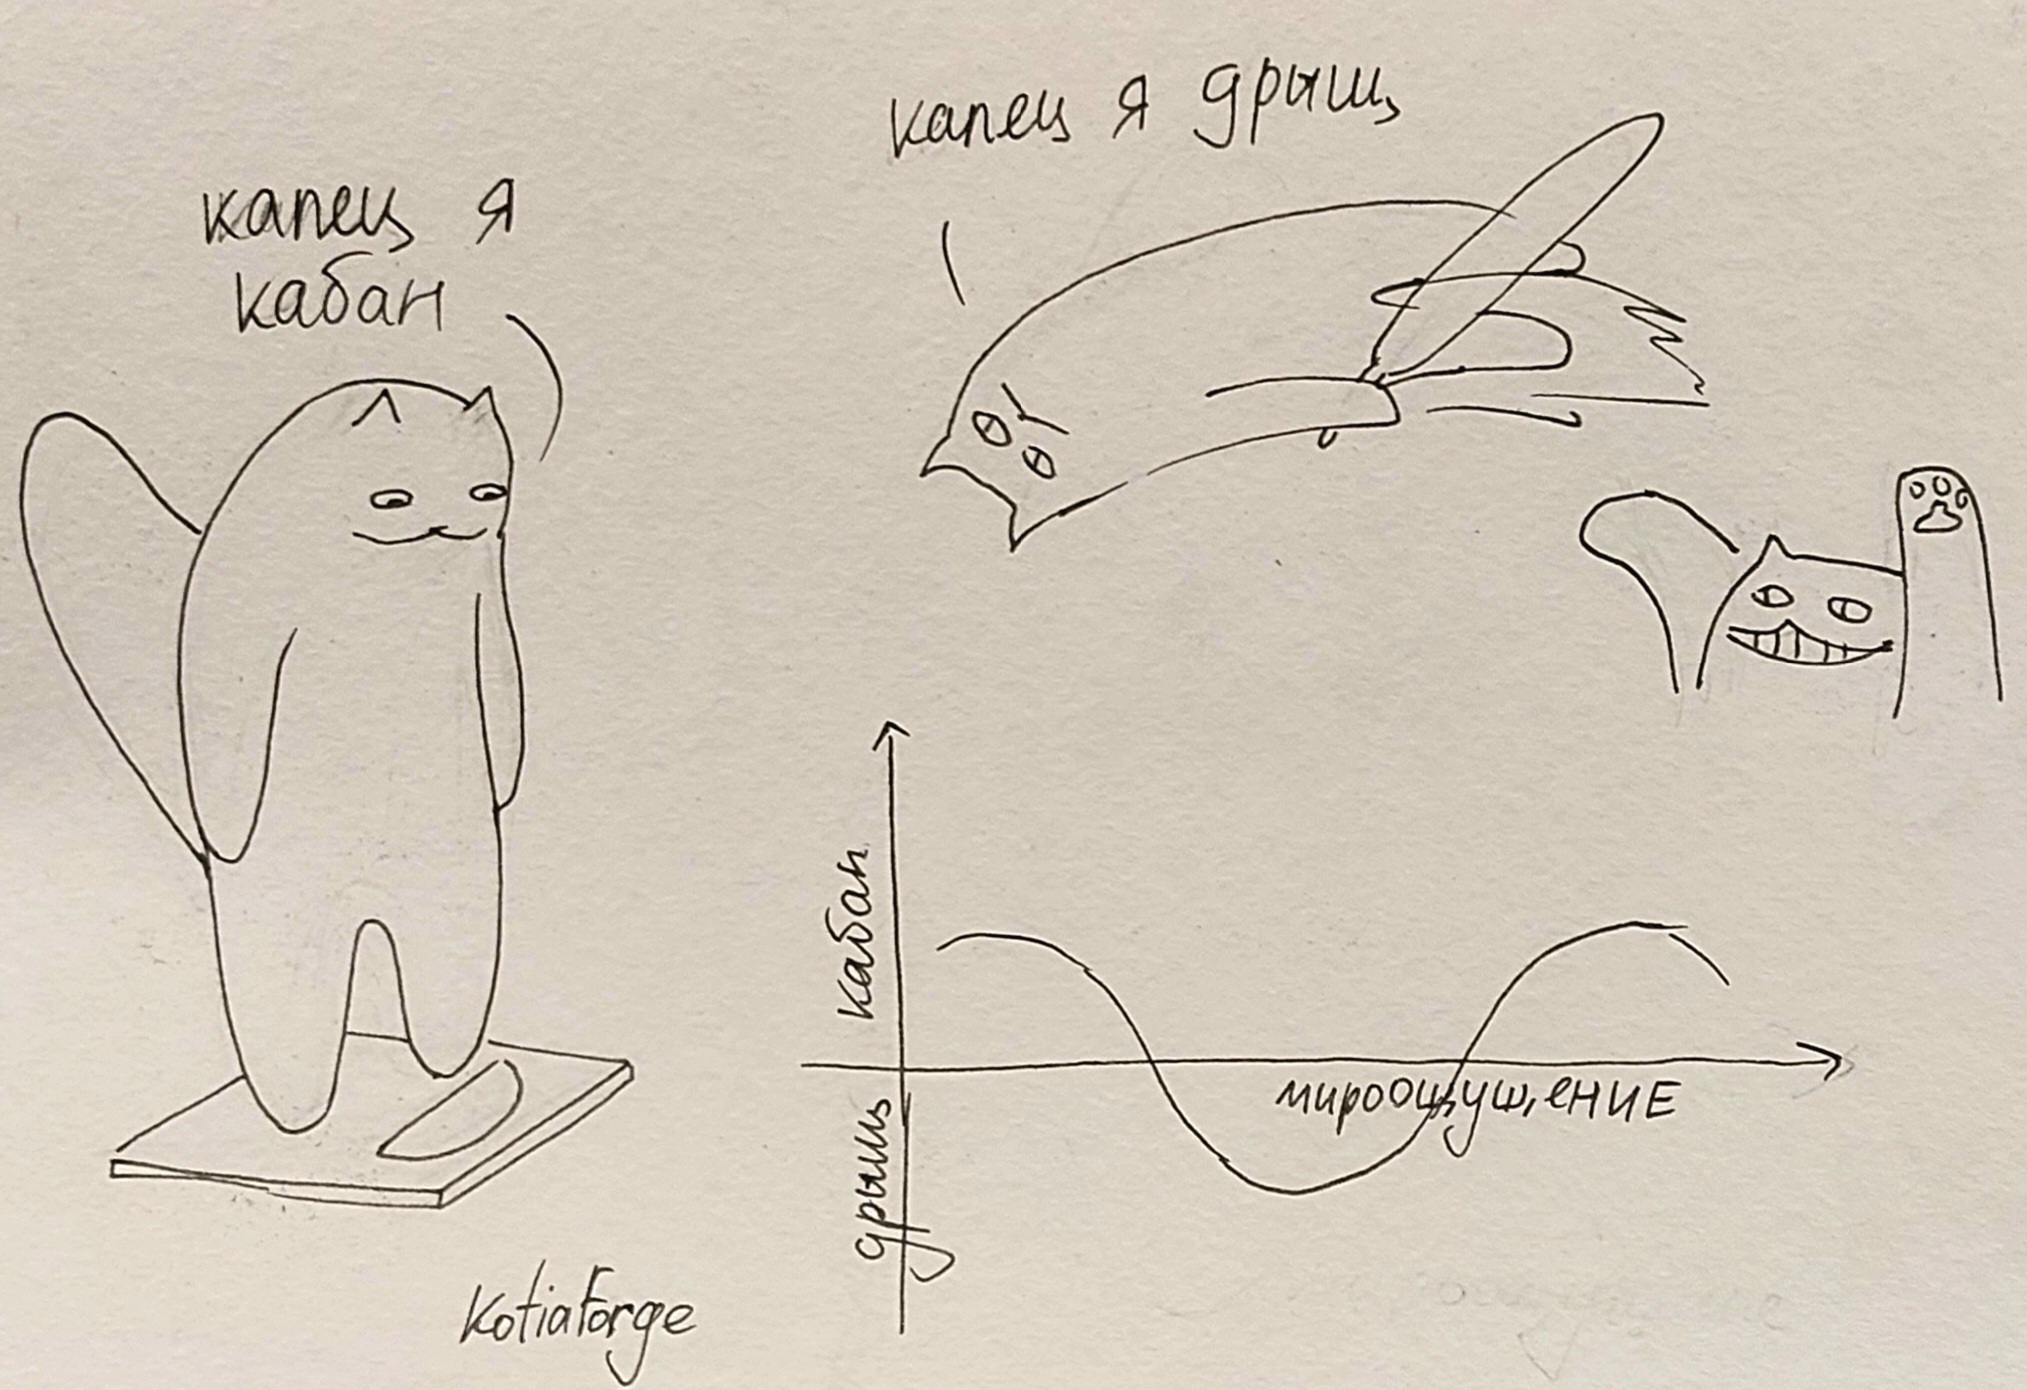 капец я дрыщ
капец я
кабан
кабан
дрыщ
мироощущение
KotiaForge